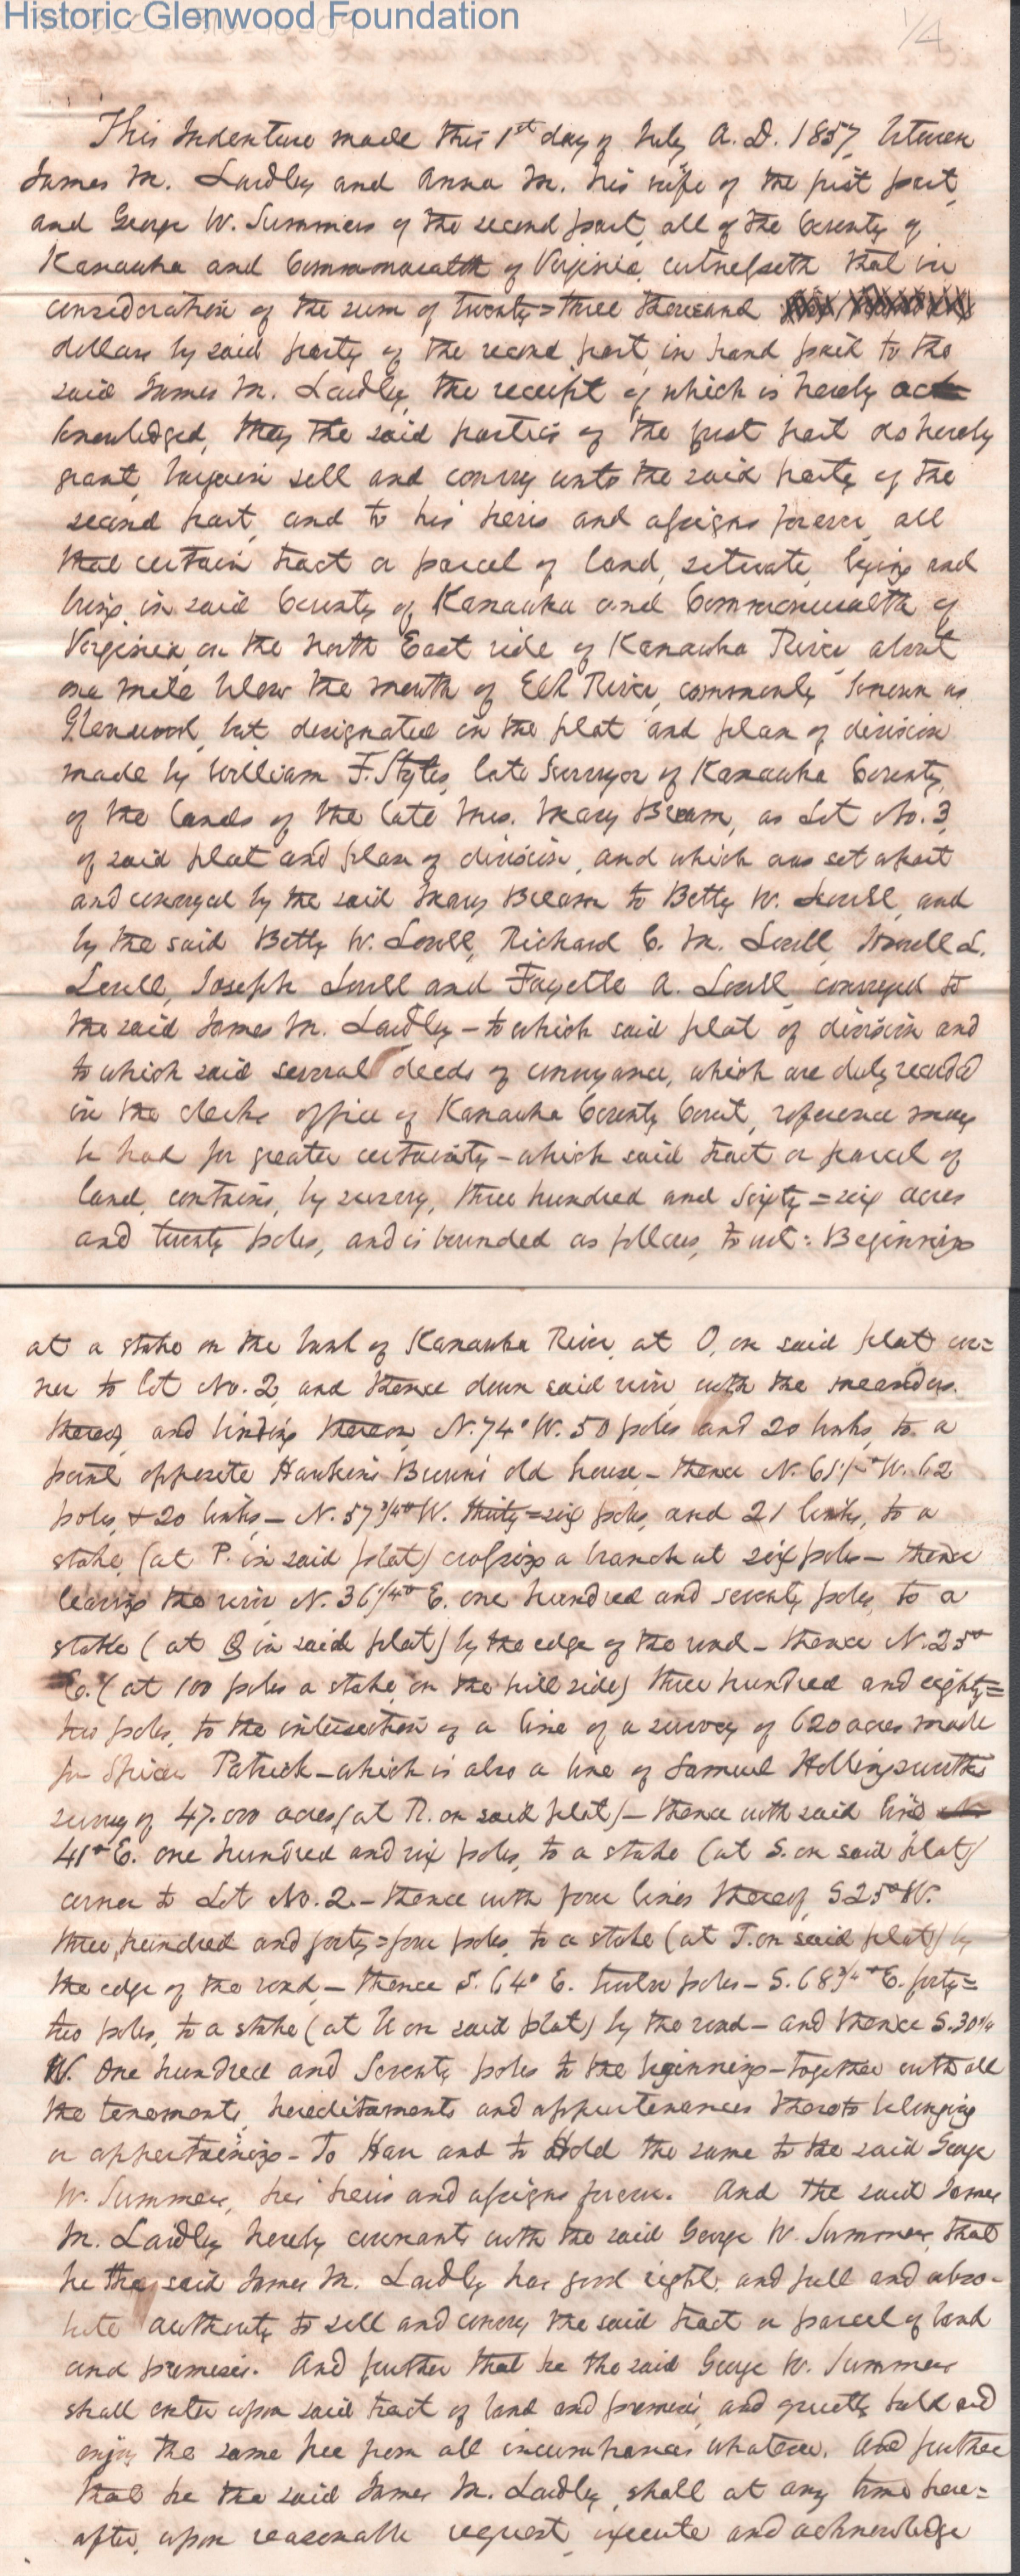 Historic Glenwood Foundation
1/4
This Indenture made this 1st day of July A.D. 1857, between
James M. Laidley and Anna M. his wife of the first part,
and George W. Summers of the second part, all of the County of
Kanawha and Commonwealth of Virginia, witnesseth that in
consideration of the sum of twenty=three thousand
dollars by said party of the second part, in hand paid to the
said James M. Laidley, the receipt of which is hereby ack
knowledged, they the said parties of the first part do hereby
grant, bargain sell and convey unto the said party of the
second part, and to his heirs and assigns forever, all
that certain tract or parcel of land, situate, lying and
being in said County of Kanawha and Commonwealth of
Virginia, on the North East side of Kanawha River, about
one mile below the mouth of Elk River, commonly known as
Glenwood, but designated in the plat and plan of division
made by William F. Styles, late Surveyor of Kanawha County,
of the lands of the late Mrs. Mary Bream, as Lot No. 3,
of said plat and plan of division, and which was set apart
and conveyed by the said Mary Bream to Betty W. Lovell, and
by the said Betty W. Lovell, Richard C. M. Lovell, Howell L.
Lovell, Joseph Lovell and Fayette A. Lovell, conveyed to
the said James M. Laidley – to which said plat of division and
to which said several deeds of conveyance, which are duly recorded
in the clerks office of Kanawha County Court, reference may
be had for greater certainty – which said tract or parcel of
land, contains, by survey, three hundred and sixty=six acres
and twenty poles, and is bounded as follows, to wit: Beginning
at a stake on the bank of Kanawha River, at O, on said plat cor=
ner to lot No. 2, and thence down said river with the meanders
thereof, and binding thereon, N. 74° W. 50 poles and 20 links, to a
point opposite Hawkins Burns' old house – thence N. 65½° W. 62
poles, & 20 links, – N. 57¾° W. thirty=six poles, and 21 links, to a
stake, (at P. in said plat) crossing a branch at six poles – thence
leaving the river N. 36¼° E. one hundred and seventy poles, to a
stake (at Q in said plat) by the edge of the road – thence N. 25°
E. (at 100 poles a stake, on the hill side) three hundred and eighty=
two poles, to the intersection of a line of a survey of 620 acres made
for Spicer Patrick – which is also a line of Samuel Hollingsworths
survey of 47.000 acres (at R. on said plat) – thence with said line
41° E. one hundred and six poles, to a stake (at S. on said plat)
corner to Lot No. 2 – thence with four lines thereof, S 25° W.
three hundred and forty=four poles, to a stake (at T. on said plat) by
the edge of the road, – thence S. 64° E. twelve poles – S. 68¾° E. forty=
two poles, to a stake (at U on said plat) by the road – and thence S. 30¼
W. One hundred and Seventy poles to the beginning – together with all
the tenements, hereditaments and appurtenances thereto belonging
or appertaining – To Have and to Hold the same to the said George
W. Summers, his heirs and assigns forever. And the said James
M. Laidley hereby covenants with the said George W. Summers, that
he the said James M. Laidley has good right, and full and abso-
lute authority to sell and convey the said tract or parcel of land
and premises. And further that he the said George W. Summers
shall enter upon said tract of land and premises, and quietly hold and
enjoy the same free from all incumbrances whatever. And further
that he the said James M. Laidley, shall at any time here=
after, upon reasonable request, execute and acknowledge